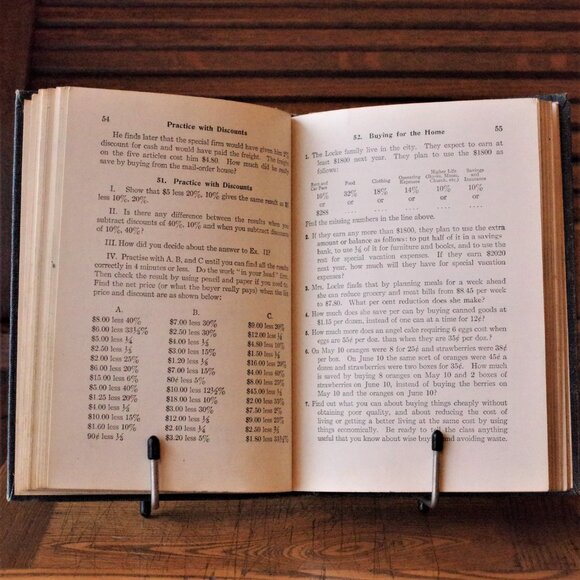 54
Practice with Discounts
He finds later that the special firm would have given him
discount for cash and would have paid the freight. The freight
on the five articles cost him $4.80. How much did he really
save by buying from the mail-order house?
51. Practice with Discounts
I. Show that $5 less 20%, 10% gives the same result as $5
less 10%, 20%.
II. Is there any difference between the results when you
subtract discounts of 40%, 10% and when you subtract discounts
of 10%, 40%?
III. How did you decide about the answer to Ex. II?
IV. Practise with A, B, and C until you can find all the results
correctly in 4 minutes or less. Do the work "in your head" first.
Then check the result by using pencil and paper if you need to.
Find the net price (or what the buyer really pays) when the list
price and discount are as shown below:
A.
$8.00 less 40%
$6.00 less 33⅓%
$5.00 less
$2.50 less
$2.00 less 25%
$6.00 less 20%
$15.00 less 6%
$5.00 less 40%
$1.25 less 20%
$4.00 less
$10.00 less 15%
$1.60 less 10%
90¢ less
B.
$7.00 less 30%
$2.50 less 30%
$4.00 less
$3.00 less 15%
$1.20 less
$7.00 less 15%
80¢ less 5%
$10.00 less 12½%
$18.00 less 10%
$3.00 less 30%
$12.00 less
$2.40 less
$3.20 less 5%
C.
$9.00 less 20%
$12.00 less
$4.80 less 10%
$1.50 less
$16.00 less 20%
$4.00 less 40%
$8.00 less 25%
$45.00 less
$2.00 less 35%
$7.50 less 2%
$9.00 less 25%
$2.50 less
$1.80 less 33⅓%
52. Buying for the Home
55
1. The Locke family live in the city. They expect to earn at
least $1800 next year. They plan to use the $1800 as
follows:
Rent and Car Fare
Food
Clothing
Operating Expenses
Higher Life (Books, Music, Church, etc.)
Savings and Insurance
16%
32%
18%
14%
10%
10%
or
or
or
or
or
or
$288
.... .... .... .... ....
Find the missing numbers in the line above.
2. If they earn any more than $1800, they plan to use the extra
amount or balance as follows: to put half of it in a savings
bank, to use of it for furniture and books, and to use the
rest for special vacation expenses. If they earn $2020
next year, how much will they have for special vacation
expenses?
3. Mrs. Locke finds that by planning meals for a week ahead
she can reduce grocery and meat bills from $8.45 per week
to $7.80. What per cent reduction does she make?
4. How much does she save per can by buying canned goods at
$1.15 per dozen, instead of one can at a time for 12¢?
5. How much more does an angel cake requiring 6 eggs cost when
eggs are 55¢ per doz. than when they are 35¢ per doz.?
6. On May 10 oranges were 8 for 25¢ and strawberries were 38¢
per box. On June 10 the same sort of oranges were 45¢ a
dozen and strawberries were two boxes for 35¢. How much
is saved by buying 8 oranges on May 10 and 2 boxes of
strawberries on June 10, instead of buying the berries on
May 10 and the oranges on June 10?
7. Find out what you can about buying things cheaply without
obtaining poor quality, and about reducing the cost of
living or getting a better living at the same cost by using
things economically. Be ready to tell the class anything
useful that you know about wise buying and avoiding waste.